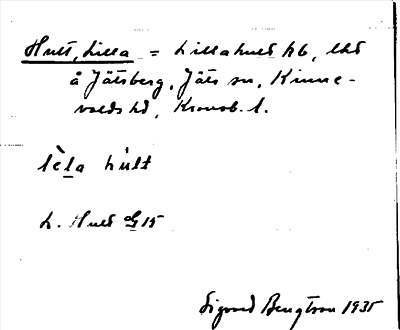 Hult, Lilla = Lillahult hb, lhd
å Jätsberg, Jäts sn, Kinne-
valds hd, Kronob. l.
lèla hult
L. Hult GS 15
Sigurd Bengtson 1935